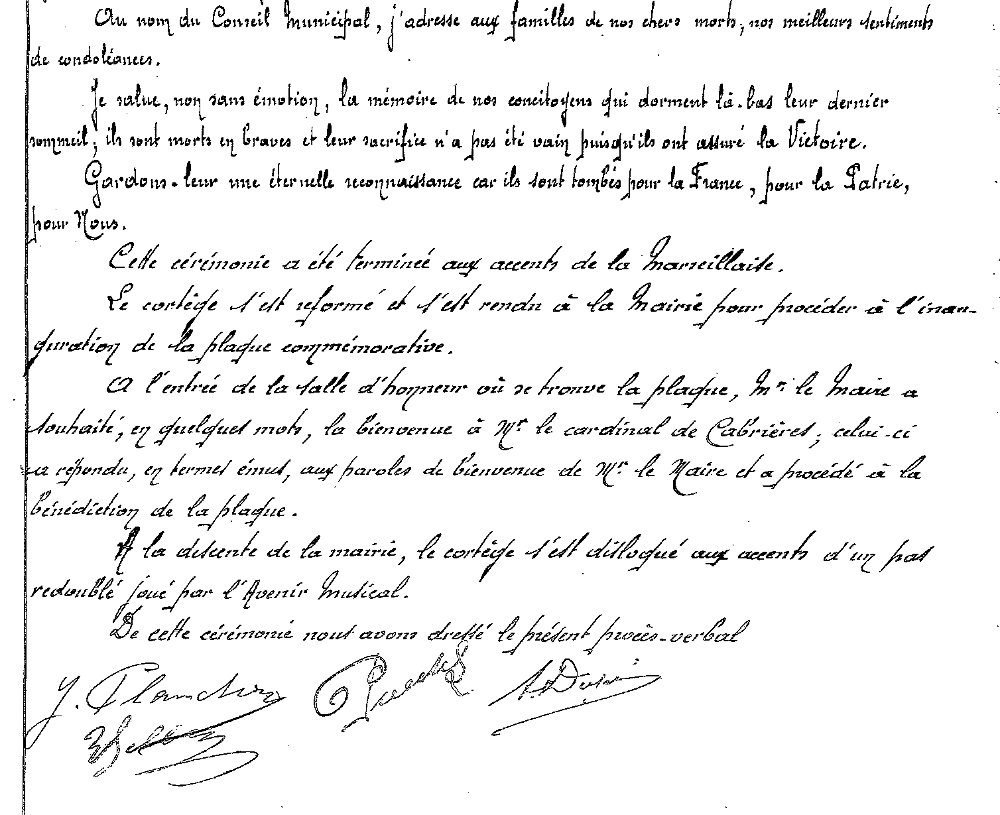 Au nom du Conseil Municipal, j'adresse aux familles de nos chers morts, nos meilleurs sentiments
de condoléances.
Je salue, non sans émotion, la mémoire de nos concitoyens qui dorment là-bas leur dernier
sommeil; ils sont morts en braves et leur sacrifice n'a pas été vain puisqu'ils ont assuré la Victoire.
Gardons-leur une éternelle reconnaissance car ils sont tombés pour la France, pour la Patrie,
pour Nous.
Cette cérémonie a été terminée aux accents de la Marseillaise.
Le cortège s'est reformé et s'est rendu à la Mairie pour procéder à l'inau-
guration de la plaque commémorative.
A l'entrée de la salle d'honneur où se trouve la plaque, Mr le Maire a
souhaité, en quelques mots, la bienvenue à Mr le cardinal de Cabrières; celui-ci
a répondu, en termes émus, aux paroles de bienvenue de Mr le Maire et a procédé à la
bénédiction de la plaque.
A la descente de la mairie, le cortège s'est disloqué aux accents d'un pas
redoublé joué par l'Avenir Musical.
De cette cérémonie nous avons dressé le présent procès-verbal
J. Planchon